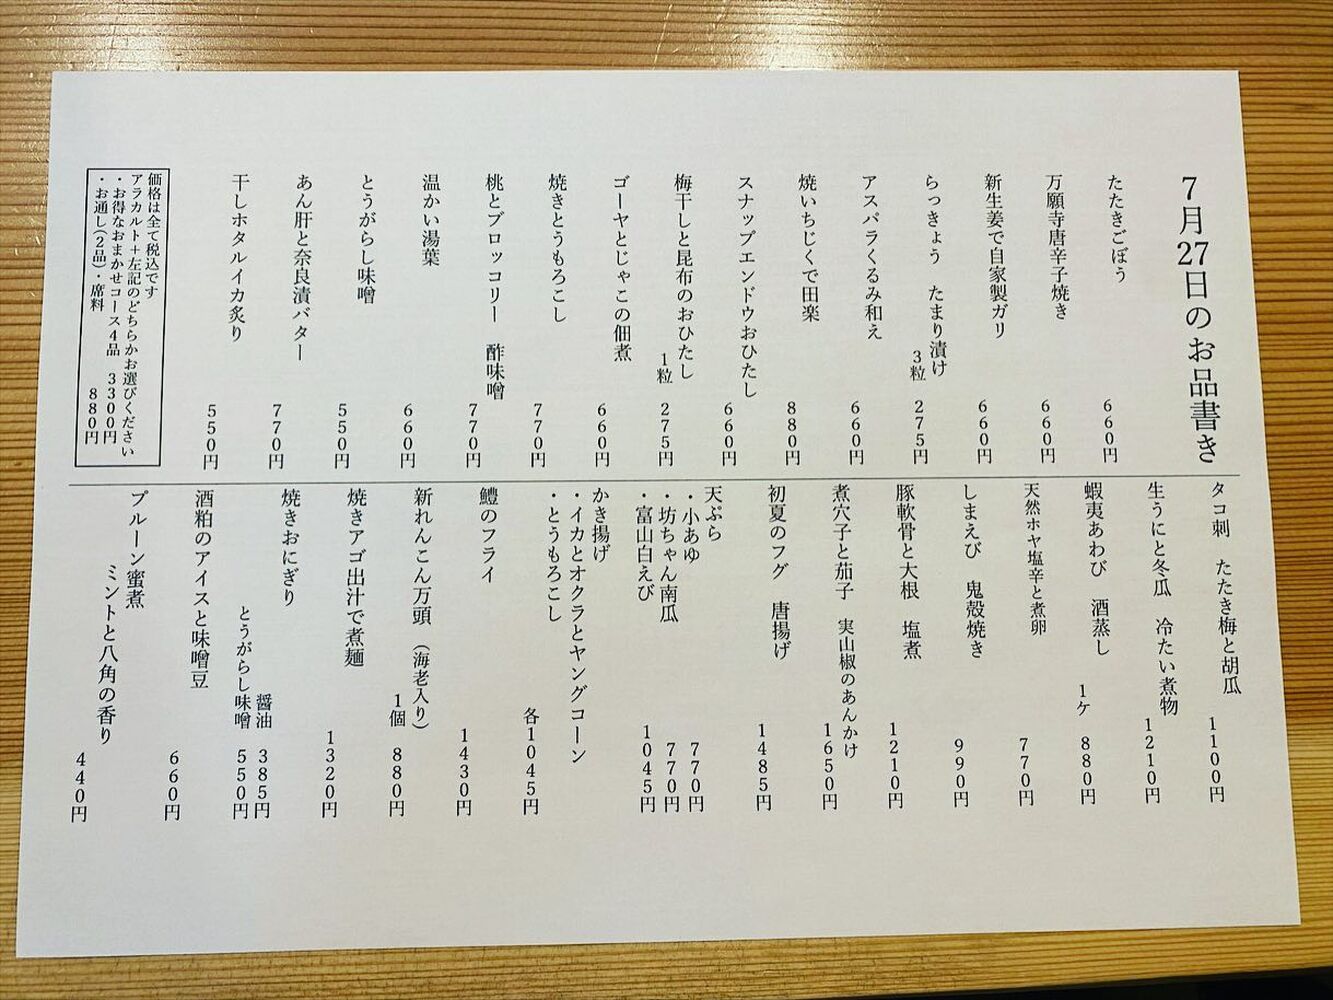 7月27日のお品書き
たたきごぼう　660円
万願寺唐辛子焼き　660円
新生姜で自家製ガリ　660円
らっきょう　たまり漬け　3粒　275円
アスパラくるみ和え　660円
焼いちじくで田楽　880円
スナップエンドウおひたし　660円
梅干しと昆布のおひたし　1粒　275円
ゴーヤとじゃこの佃煮　660円
焼きとうもろこし　770円
桃とブロッコリー　酢味噌　770円
温かい湯葉　660円
とうがらし味噌　550円
あん肝と奈良漬バター　770円
干しホタルイカ炙り　550円
価格は全て税込です
アラカルト＋左記のどちらかお選びください
・お得なおまかせコース4品　3300円
・お通し(2品)・席料　880円
タコ刺　たたき梅と胡瓜　1100円
生うにと冬瓜　冷たい煮物　1210円
蝦夷あわび　酒蒸し　1ケ　880円
天然ホヤ塩辛と煮卵　770円
しまえび　鬼殻焼き　990円
豚軟骨と大根　塩煮　1210円
煮穴子と茄子　実山椒のあんかけ　1650円
初夏のフグ　唐揚げ　1485円
天ぷら
・小あゆ　770円
・坊ちゃん南瓜　770円
・富山白えび　1045円
かき揚げ
・イカとオクラとヤングコーン
・とうもろこし　各1045円
鱧のフライ　1430円
新れんこん万頭　(海老入り)　1個　880円
焼きアゴ出汁で煮麺　1320円
焼きおにぎり
醤油　385円
とうがらし味噌　550円
酒粕のアイスと味噌豆　660円
プルーン蜜煮
ミントと八角の香り　440円